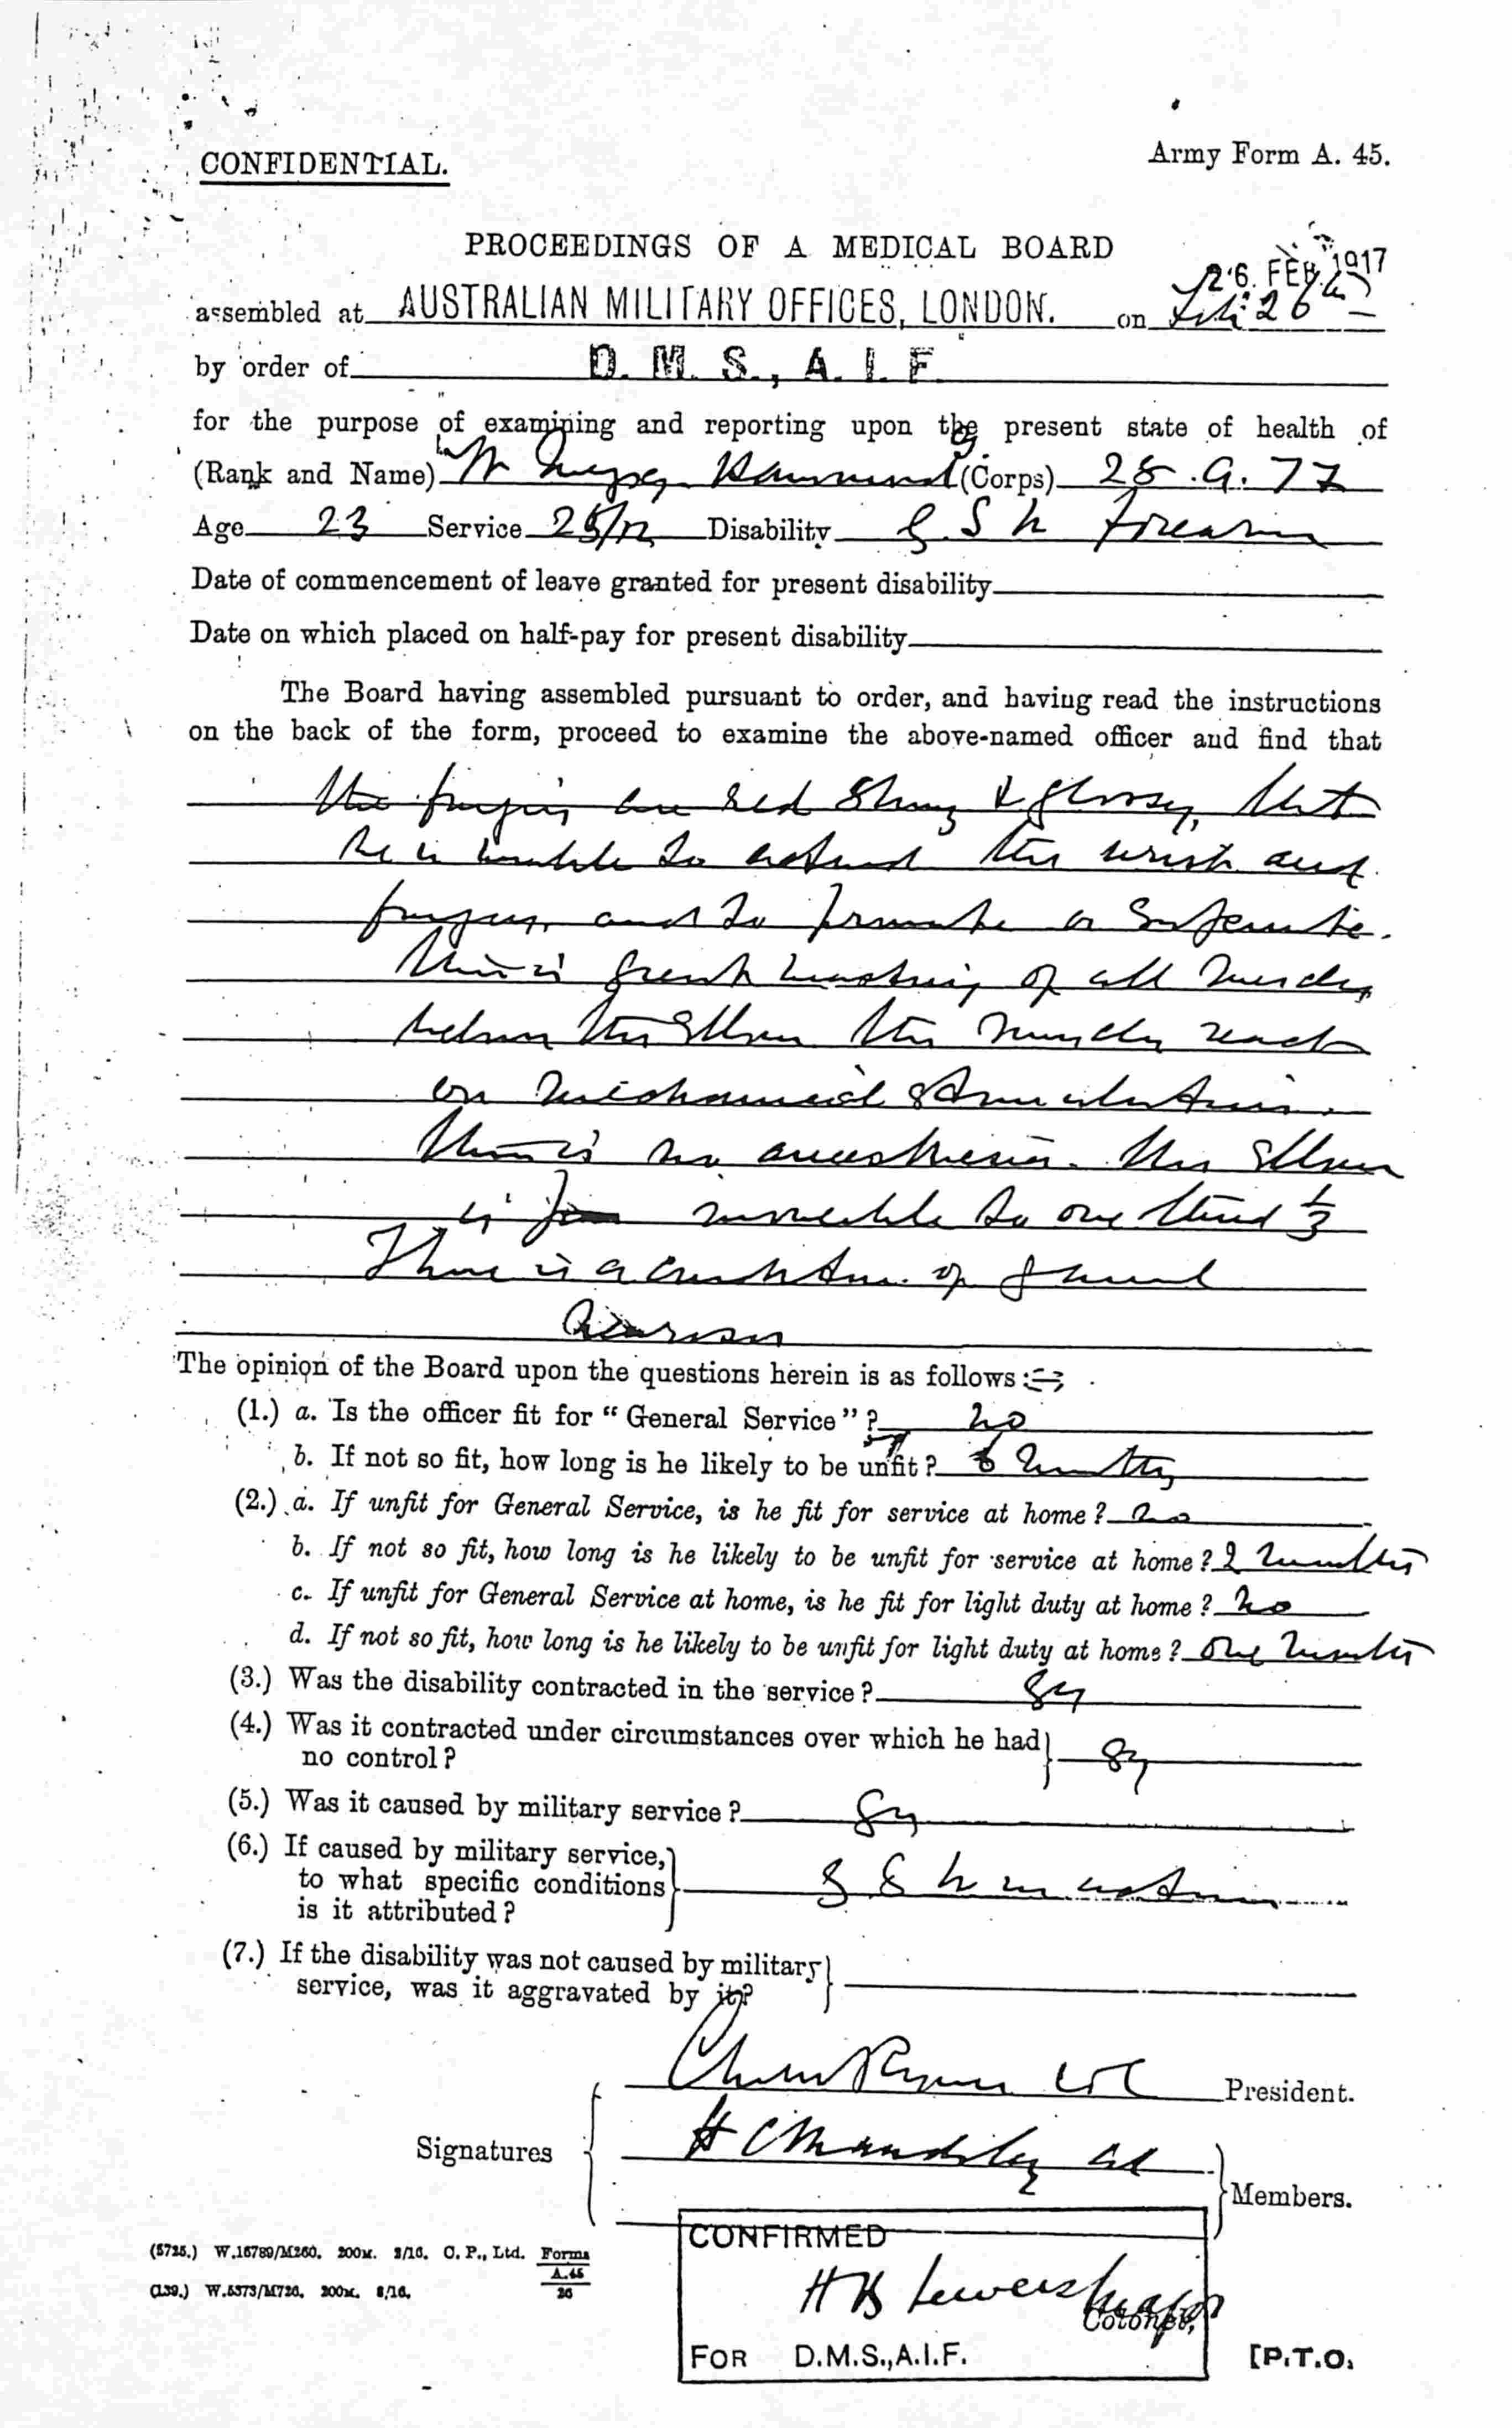 CONFIDENTIAL.
Army Form A. 45.
PROCEEDINGS OF A MEDICAL BOARD
26. FEB. 1917
assembled at AUSTRALIAN MILITARY OFFICES, LONDON. on Feb 26
by order of D. M. S., A. I. F.
for the purpose of examining and reporting upon the present state of health of
(Rank and Name) Hammond (Corps) 28.
Age 23 Service Disability G S W forearm
Date of commencement of leave granted for present disability
Date on which placed on half-pay for present disability
The Board having assembled pursuant to order, and having read the instructions
on the back of the form, proceed to examine the above-named officer and find that
the fingers are red shiny & glossy, that
he is unable to extend the wrist and
fingers and to pronate or supinate.
There is great wasting of all muscles
below the elbow the muscles react
on mechanical stimulation.
There is no anaesthesia. The elbow
is moveable to one third 1/3
There is a of
The opinion of the Board upon the questions herein is as follows :—
(1.) a. Is the officer fit for “ General Service ” ? no
b. If not so fit, how long is he likely to be unfit ? 6 months
(2.) a. If unfit for General Service, is he fit for service at home ? no
b. If not so fit, how long is he likely to be unfit for service at home ? 2 months
c. If unfit for General Service at home, is he fit for light duty at home ? no
d. If not so fit, how long is he likely to be unfit for light duty at home ? one month
(3.) Was the disability contracted in the service ?
(4.) Was it contracted under circumstances over which he had
no control ?
(5.) Was it caused by military service ?
(6.) If caused by military service,
to what specific conditions G S W in action
is it attributed ?
(7.) If the disability was not caused by military
service, was it aggravated by it?
President.
Signatures
Members.
CONFIRMED
(5725.) W.16789/M1260. 200M. 2/16. C. P., Ltd. Forms
A.45
26
(139.) W.5373/M726. 200M. 8/16.
Colonel,
FOR D.M.S., A.I.F.
[P.T.O.